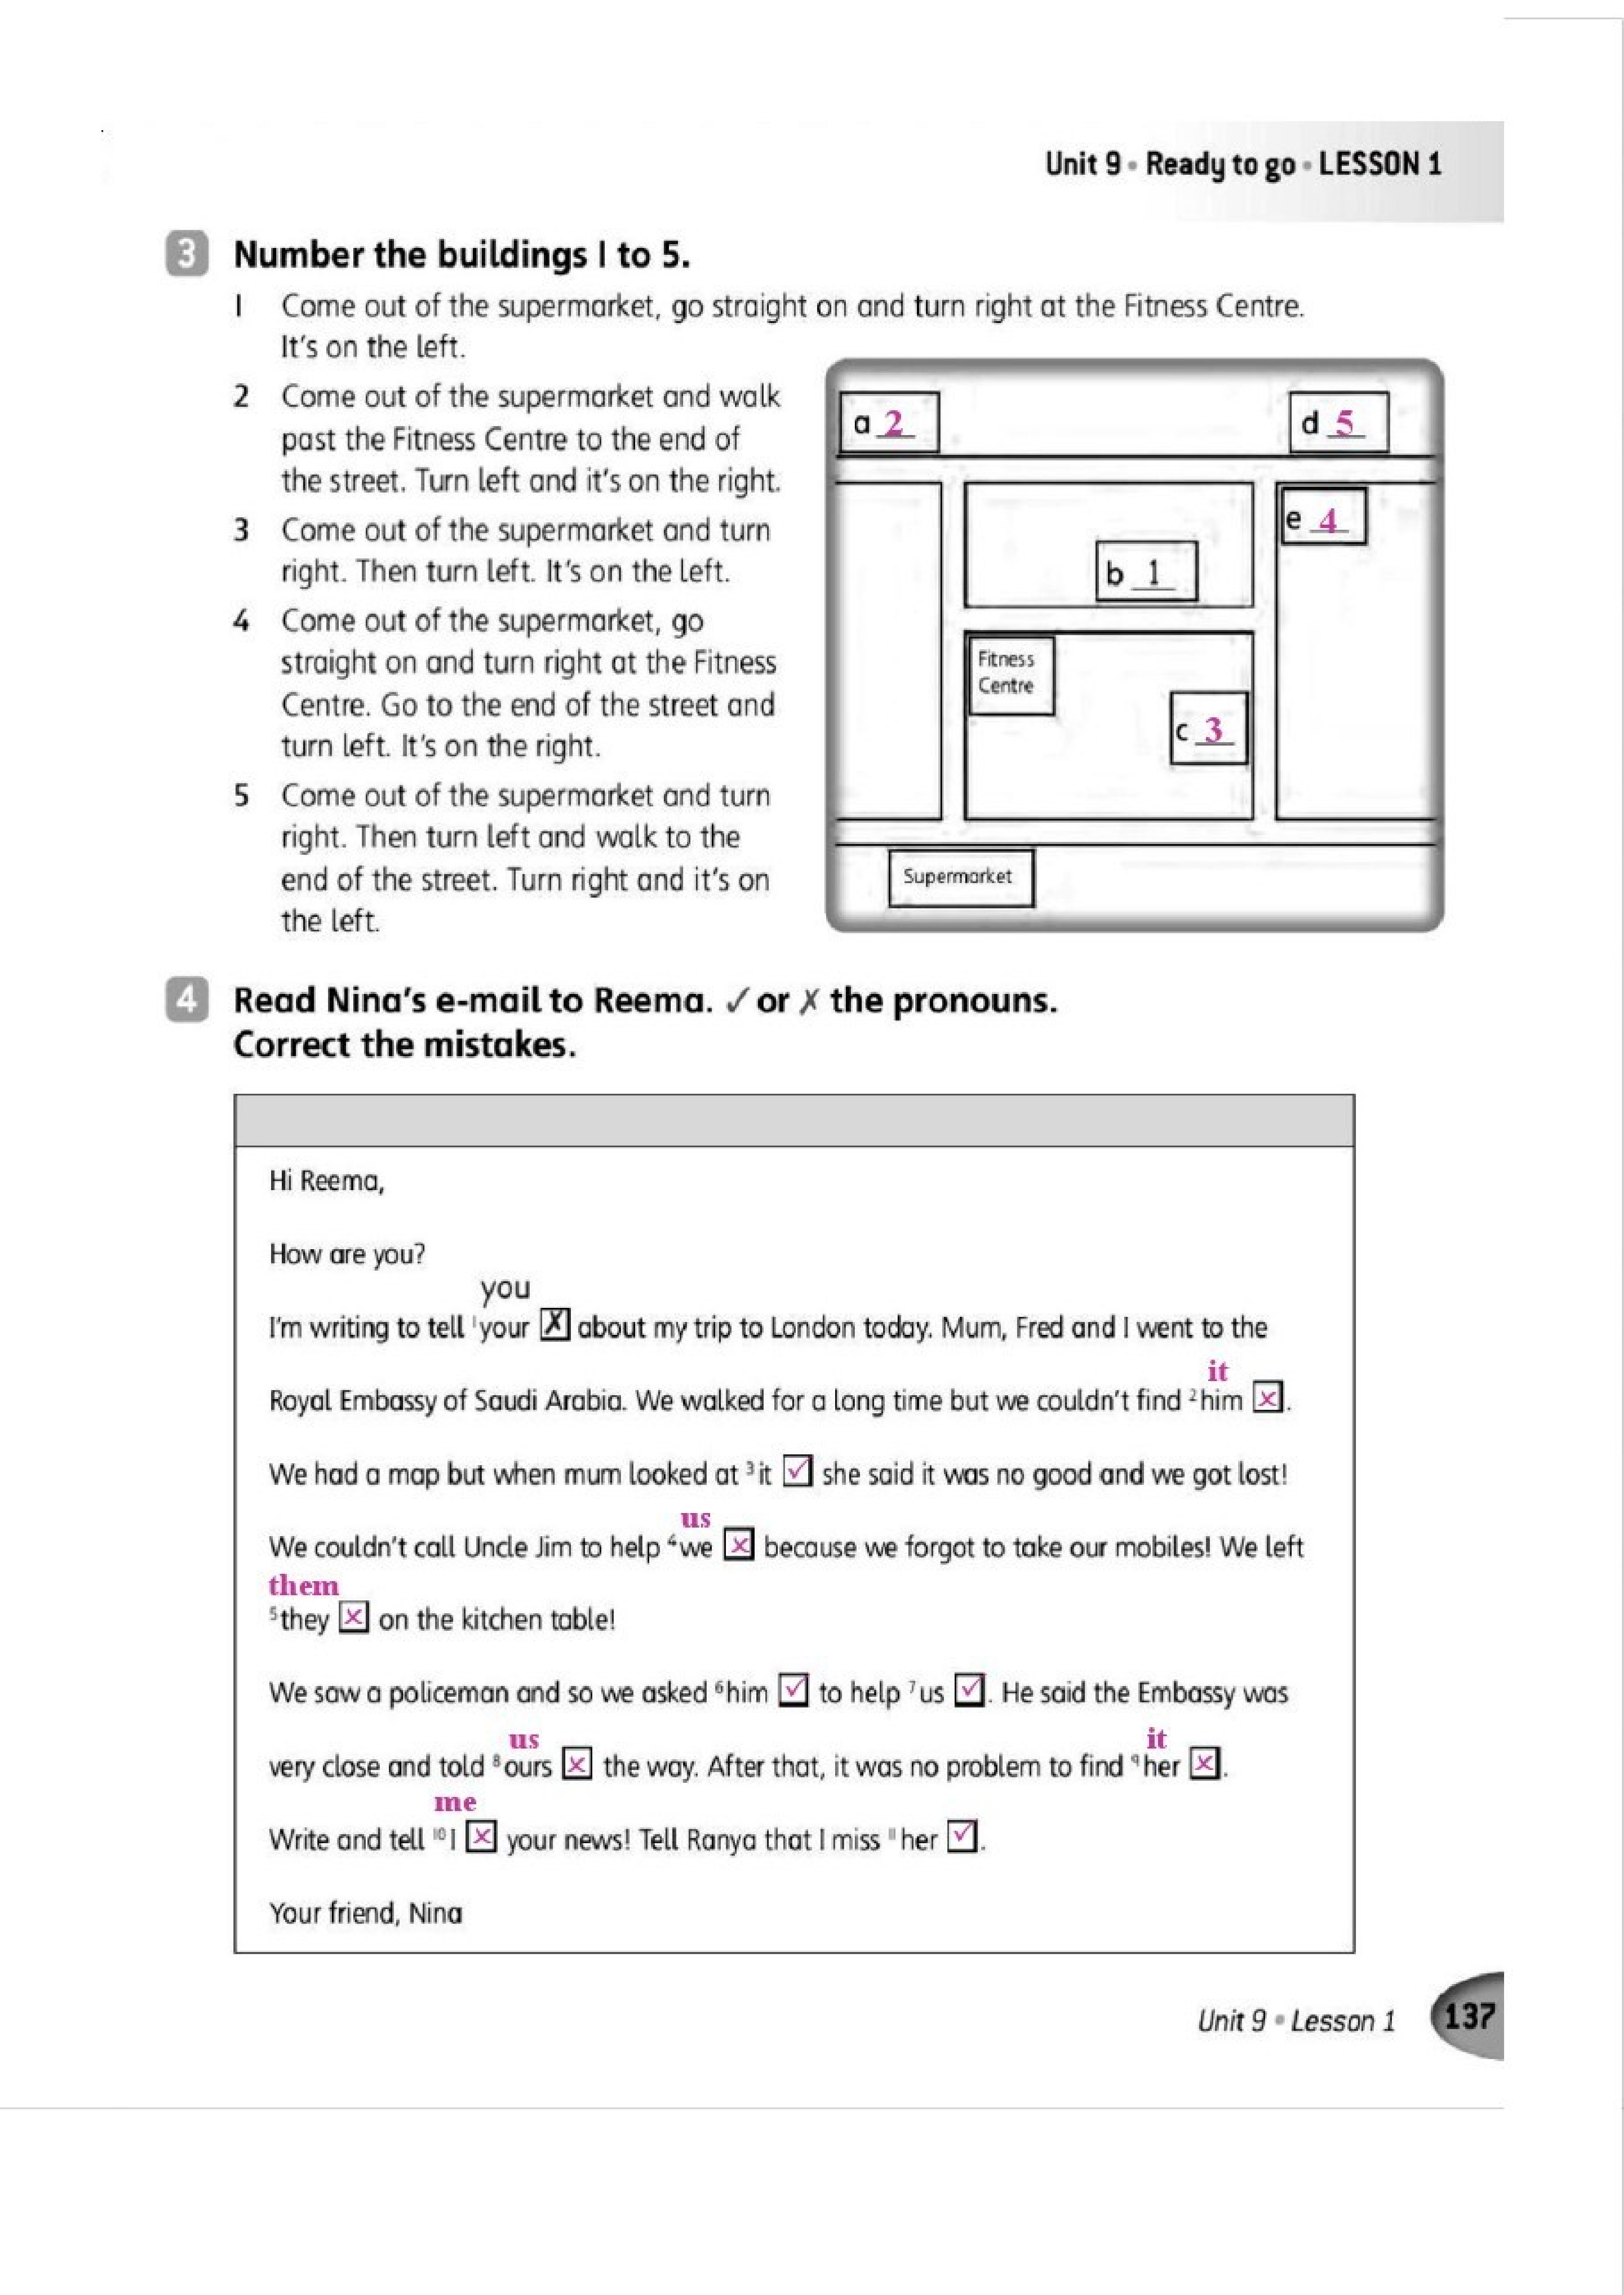 Unit 9 • Ready to go • LESSON 1
3 Number the buildings 1 to 5.
1 Come out of the supermarket, go straight on and turn right at the Fitness Centre.
It's on the left.
2 Come out of the supermarket and walk
past the Fitness Centre to the end of
the street. Turn left and it's on the right.
3 Come out of the supermarket and turn
right. Then turn left. It's on the left.
4 Come out of the supermarket, go
straight on and turn right at the Fitness
Centre. Go to the end of the street and
turn left. It's on the right.
5 Come out of the supermarket and turn
right. Then turn left and walk to the
end of the street. Turn right and it's on
the left.
a 2
d 5
e 4
b 1
Fitness
Centre
c 3
Supermarket
4 Read Nina's e-mail to Reema. ✓ or ✗ the pronouns.
Correct the mistakes.
Hi Reema,
How are you?
you
I'm writing to tell ¹your ✗ about my trip to London today. Mum, Fred and I went to the
it
Royal Embassy of Saudi Arabia. We walked for a long time but we couldn't find ²him ✗.
We had a map but when mum looked at ³it ✓ she said it was no good and we got lost!
us
We couldn't call Uncle Jim to help ⁴we ✗ because we forgot to take our mobiles! We left
them
⁵they ✗ on the kitchen table!
We saw a policeman and so we asked ⁶him ✓ to help ⁷us ✓. He said the Embassy was
us it
very close and told ⁸ours ✗ the way. After that, it was no problem to find ⁹her ✗.
me
Write and tell ¹⁰I ✗ your news! Tell Ranya that I miss ¹¹her ✓.
Your friend, Nina
Unit 9 • Lesson 1 137